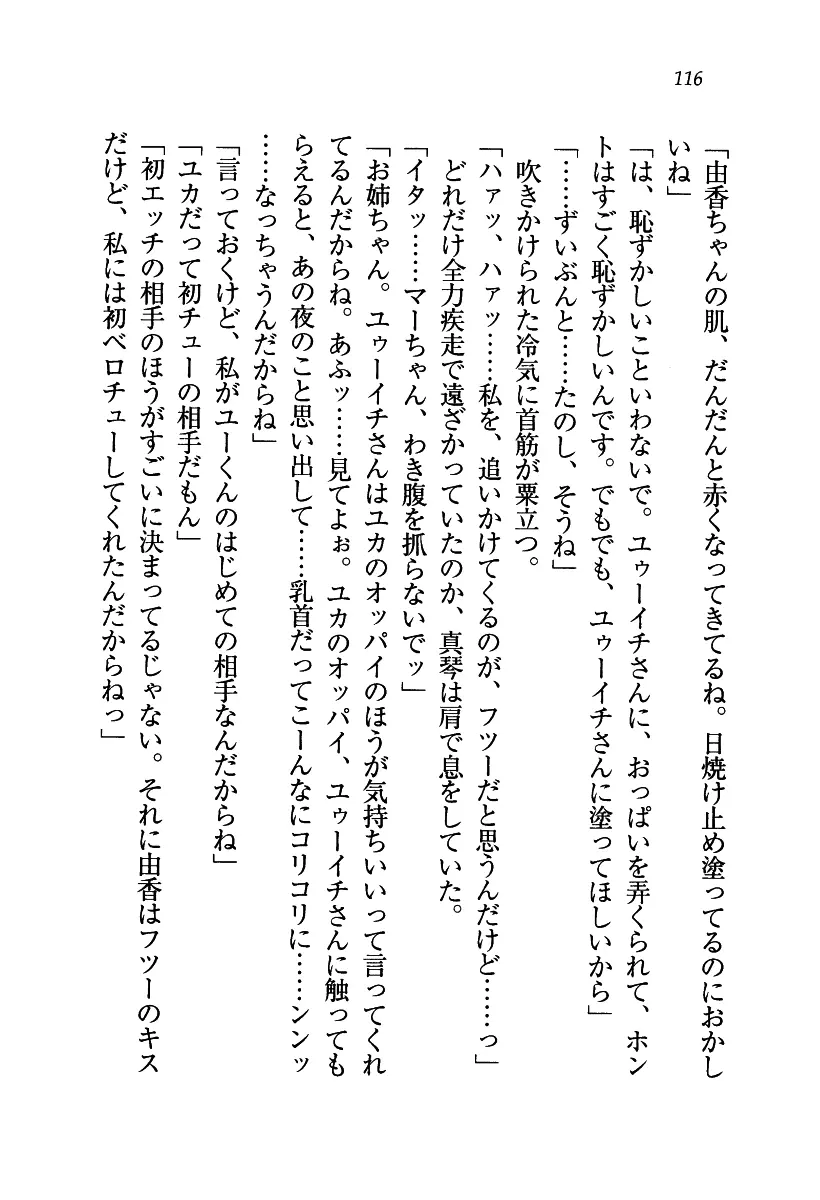 116
「由香ちゃんの肌、だんだんと赤くなってきてるね。日焼け止め塗ってるのにおかし
いね」
「は、恥ずかしいこといわないで。ユゥーイチさんに、おっぱいを弄くられて、ホン
トはすごく恥ずかしいんです。でもでも、ユゥーイチさんに塗ってほしいから」
「……ずいぶんと……たのし、そうね」
吹きかけられた冷気に首筋が粟立つ。
「ハァッ、ハァッ……私を、追いかけてくるのが、フツーだと思うんだけど……っ」
どれだけ全力疾走で遠ざかっていたのか、真琴は肩で息をしていた。
「イタッ……マーちゃん、わき腹を抓らないでッ」
「お姉ちゃん。ユゥーイチさんはユカのオッパイのほうが気持ちいいって言ってくれ
てるんだからね。あふッ……見てよぉ。ユカのオッパイ、ユゥーイチさんに触っても
らえると、あの夜のこと思い出して……乳首だってこーんなにコリコリに……ンンッ
……なっちゃうんだからね」
「言っておくけど、私がユーくんのはじめての相手なんだからね」
「ユカだって初チューの相手だもん」
「初エッチの相手のほうがすごいに決まってるじゃない。それに由香はフツーのキス
だけど、私には初ベロチューしてくれたんだからねっ」